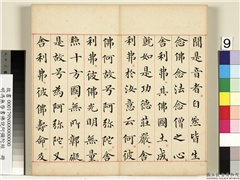 聞是音者自然皆生
念佛念法念僧之心
舍利弗其佛國土成
就如是功德莊嚴舍
利弗於汝意云何彼
佛何故号阿彌陀舍
利弗彼佛光明無量
照十方國無所障礙
是故号為阿彌陀又
舍利弗彼佛壽命及
9